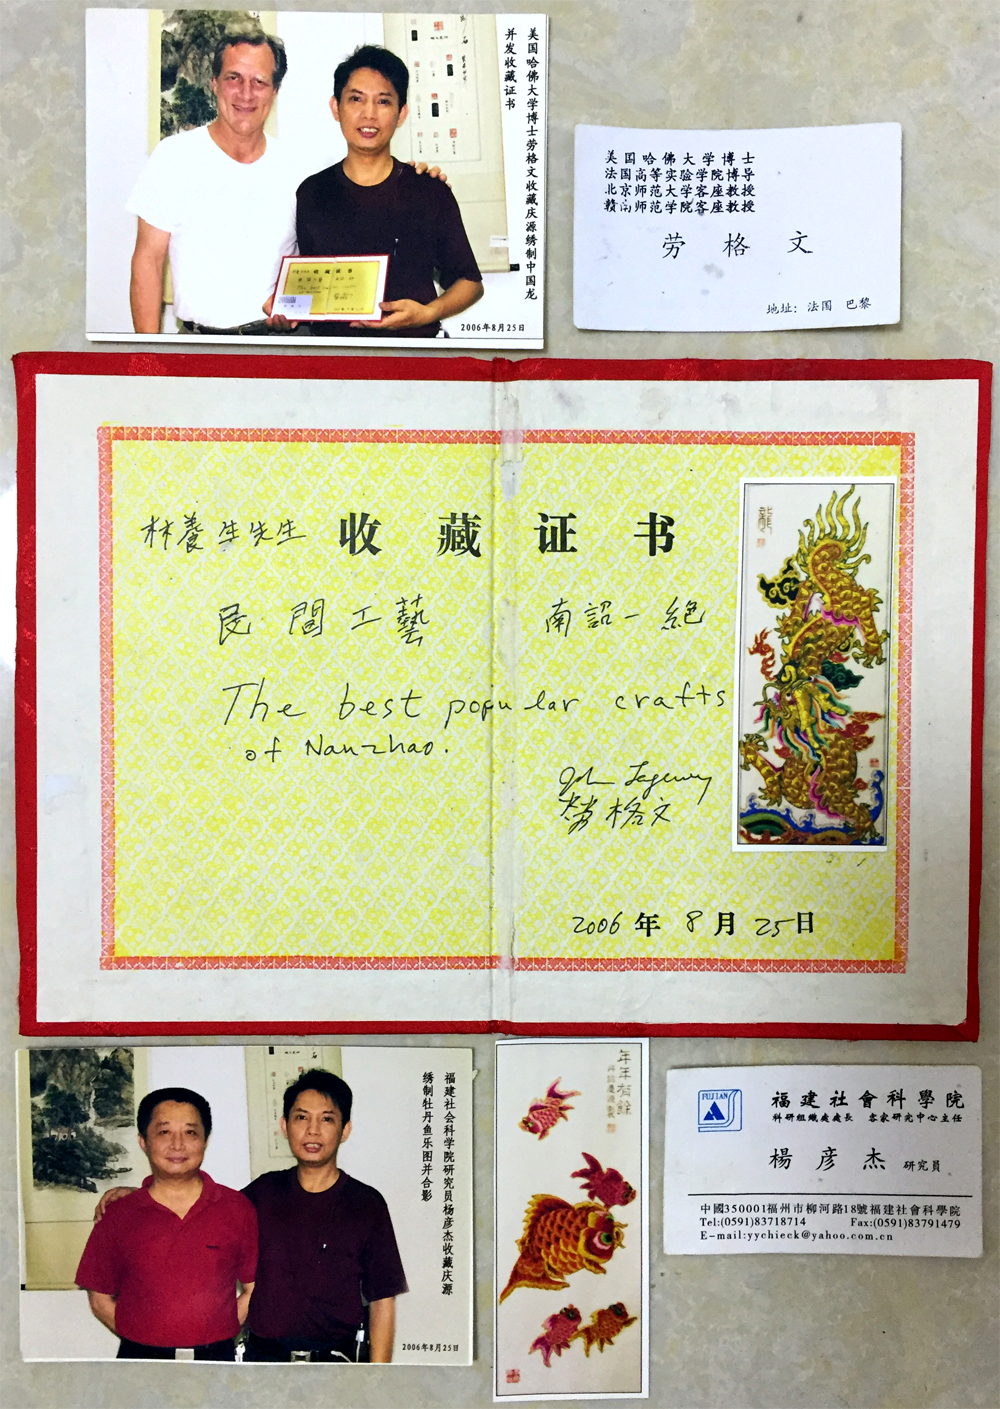 美国哈佛大学博士劳格文收藏庆源绣制中国龙
并发收藏证书
2006年8月25日
美国哈佛大学博士
法国高等实验学院博导
北京师范大学客座教授
赣南师范学院客座教授
劳格文
地址：法国 巴黎
林養生先生 收藏证书
民間工藝 南詔一絕
The best popular crafts
of Nanzhao.
John Lagerwey
勞格文
2006年8月25日
福建社会科学院研究员杨彦杰收藏庆源
绣制牡丹鱼乐图并合影
2006年8月25日
年年有餘
FUJIAN
福建社會科學院
科研組織處處長 客家研究中心主任
楊彦杰 研究員
中國350001福州市柳河路18號福建社會科學院
Tel:(0591)83718714 Fax:(0591)83791479
E-mail:yychieck@yahoo.com.cn